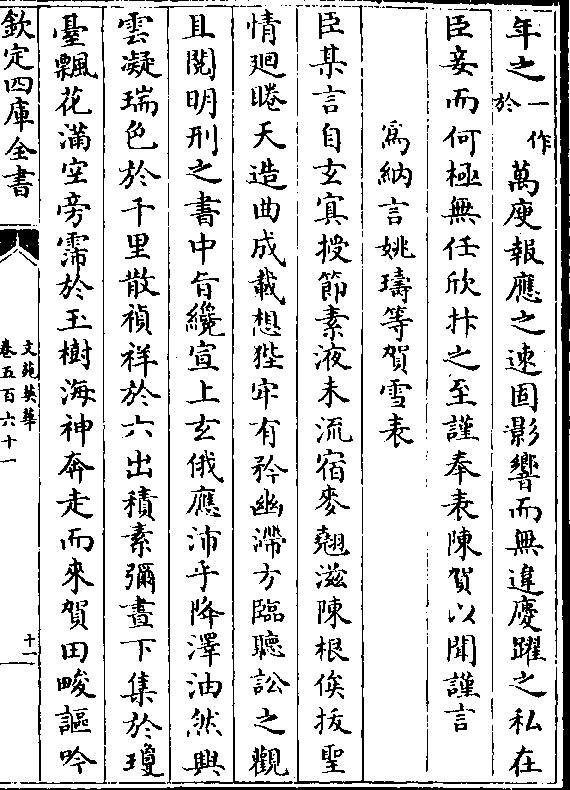 年之一作於萬庾報應之速固影響而無違慶躍之私在
臣妾而何極無任欣抃之至謹奉表陳賀以聞謹言
為納言姚璹等賀雪表
臣某言自玄冥授節素液未流宿麥翹滋陳根俟拔聖
情廻睠天造曲成載想狴牢有矜幽滯方臨聽訟之觀
且閱明刑之書中旨纔宣上玄俄應沛乎降澤油然興
雲凝瑞色於千里散禎祥於六出積素彌晝下集於瓊
臺飄花滿空旁霈於玉樹海神奔走而來賀田畯謳吟
欽定四庫全書
文苑英華
卷五百六十一
十一